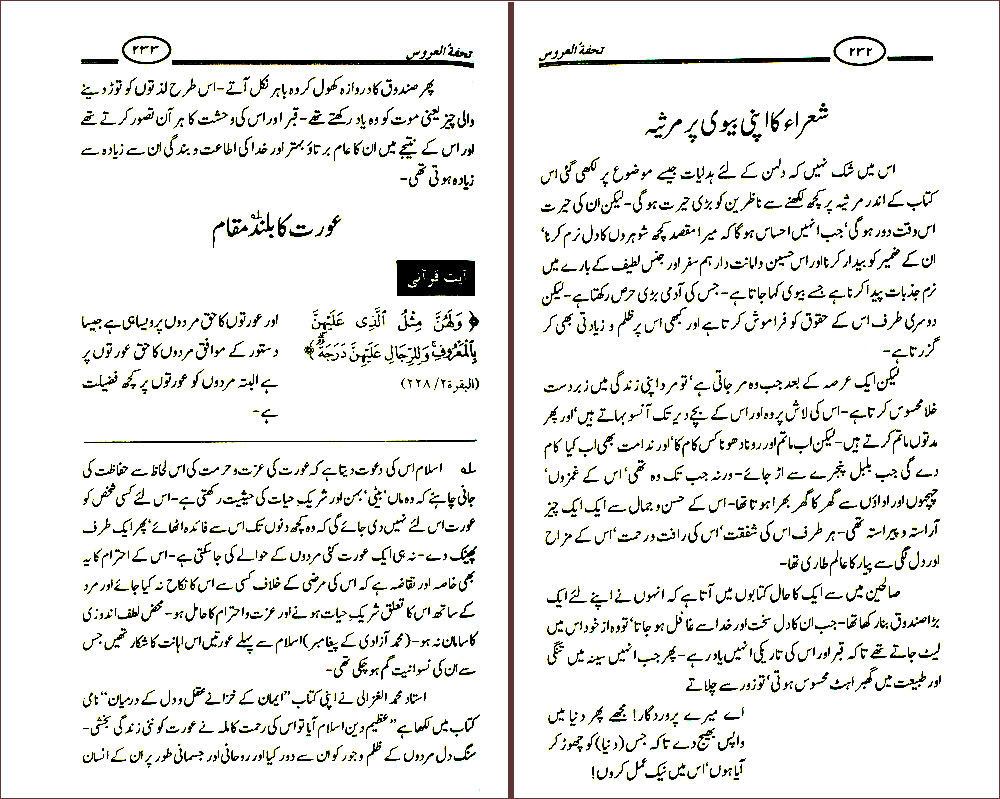 تحفۃ العروس
۲۳۲
شعراء کا اپنی بیوی پر مرثیہ
اس میں شک نہیں کہ دلہن کے لئے ہدایات جیسے موضوع پر لکھی گئی اس
کتاب کے اندر مرثیہ پر کچھ لکھنے سے ناظرین کو بڑی حیرت ہوگی۔ لیکن ان کی حیرت
اس وقت دور ہوگی‘ جب انہیں احساس ہوگا کہ میرا مقصد کچھ شوہروں کا دل نرم کرنا‘
ان کے ضمیر کو بیدار کرنا اور اس حسین و امانت دار ہم سفر اور جنس لطیف کے بارے میں
نرم جذبات پیدا کرنا ہے جسے بیوی کہا جاتا ہے۔ جس کی آدمی بڑی حرص رکھتا ہے۔ لیکن
دوسری طرف اس کے حقوق کو فراموش کرتا ہے اور کبھی اس پر ظلم و زیادتی بھی کر
گزرتا ہے۔
لیکن ایک عرصہ کے بعد جب وہ مر جاتی ہے‘ تو مرد اپنی زندگی میں زبردست
خلا محسوس کرتا ہے۔ اس کی لاش پر وہ اور اس کے بچے دیر تک آنسو بہاتے ہیں‘ اور پھر
مدتوں ماتم کرتے ہیں۔ لیکن اب ماتم اور رونا دھونا کس کام کا‘ اور ندامت بھی اب کیا کام
دے گی جب بلبل پنجرے سے اڑ جائے۔ ورنہ جب تک وہ تھی‘ اس کے غمزوں‘
چہچہوں اور اداؤں سے گھر کا گھر بھرا ہوتا تھا۔ اس کے حسن و جمال سے ایک ایک چیز
آراستہ و پیراستہ تھی۔ ہر طرف اس کی شفقت‘ اس کی رافت و رحمت‘ اس کے مزاح
اور دل لگی سے پیار کا عالم طاری تھا۔
صالحین میں سے ایک کا حال کتابوں میں آتا ہے کہ انہوں نے اپنے لئے ایک
بڑا صندوق بنا رکھا تھا۔ جب ان کا دل سخت اور خدا سے غافل ہو جاتا‘ تو وہ از خود اس میں
لیٹ جاتے تھے تاکہ قبر اور اس کی تاریکی انہیں یاد رہے۔ پھر جب انہیں سینہ میں تنگی
اور طبیعت میں گھبراہٹ محسوس ہوتی‘ تو زور سے چلاتے
اے میرے پروردگار! مجھے پھر دنیا میں
واپس بھیج دے تاکہ جس (دنیا) کو چھوڑ کر
آیا ہوں‘ اس میں نیک عمل کروں!
تحفۃ العروس
۲۳۳
پھر صندوق کا دروازہ کھول کر وہ باہر نکل آتے۔ اس طرح لذتوں کو توڑ دینے
والی چیز یعنی موت کو وہ یاد رکھتے تھے۔ قبر اور اس کی وحشت کا ہر آن تصور کرتے تھے
اور اس کے نتیجے میں ان کا عام برتاؤ بہتر اور خدا کی اطاعت و بندگی ان سے زیادہ سے
زیادہ ہوتی تھی۔
عورت کا بلند مقام ؎۱
آیت قرآنی
﴿ وَلَهُنَّ مِثْلُ الَّذِى عَلَيْهِنَّ
بِالْمَعْرُوفِ وَلِلرِّجَالِ عَلَيْهِنَّ دَرَجَةٌ ﴾
(البقرة ۲/ ۲۲۸)
اور عورتوں کا حق مردوں پر ویسا ہی ہے جیسا
دستور کے موافق مردوں کا حق عورتوں پر
ہے البتہ مردوں کو عورتوں پر کچھ فضیلت
ہے۔
؎۱ اسلام اس کی دعوت دیتا ہے کہ عورت کی عزت و حرمت کی اس لحاظ سے حفاظت کی
جانی چاہئے کہ وہ ماں‘ بیٹی‘ بہن اور شریک حیات کی حیثیت رکھتی ہے۔ اس لئے کسی شخص کو
عورت اس لئے نہیں دی جائے گی کہ وہ کچھ دنوں تک اس سے فائدہ اٹھائے‘ پھر ایک طرف
پھینک دے۔ نہ ہی ایک عورت کئی مردوں کے حوالے کی جا سکتی ہے۔ اس کے احترام کا یہ
بھی خاصہ اور تقاضہ ہے کہ اس کی مرضی کے خلاف کسی سے اس کا نکاح نہ کیا جائے اور مرد
کے ساتھ اس کا تعلق شریک حیات ہونے اور عزت و احترام کا حامل ہو۔ محض لطف اندوزی
کا سامان نہ ہو۔ (محمد آزادی کے پیغامبر) اسلام سے پہلے عورتیں اس اہانت کا شکار تھیں جس
سے ان کی نسوانیت گم ہو چکی تھی۔
استاد محمد الغزالی نے اپنی کتاب ”ایمان کے خزانے عقل و دل کے درمیان“ نامی
کتاب میں لکھا ہے ”عظیم دین اسلام آیا تو اس کی رحمت کاملہ نے عورت کو نئی زندگی بخشی۔
سنگ دل مردوں کے ظلم و جور کو ان سے دور کیا اور روحانی اور جسمانی طور پر ان کے انسان